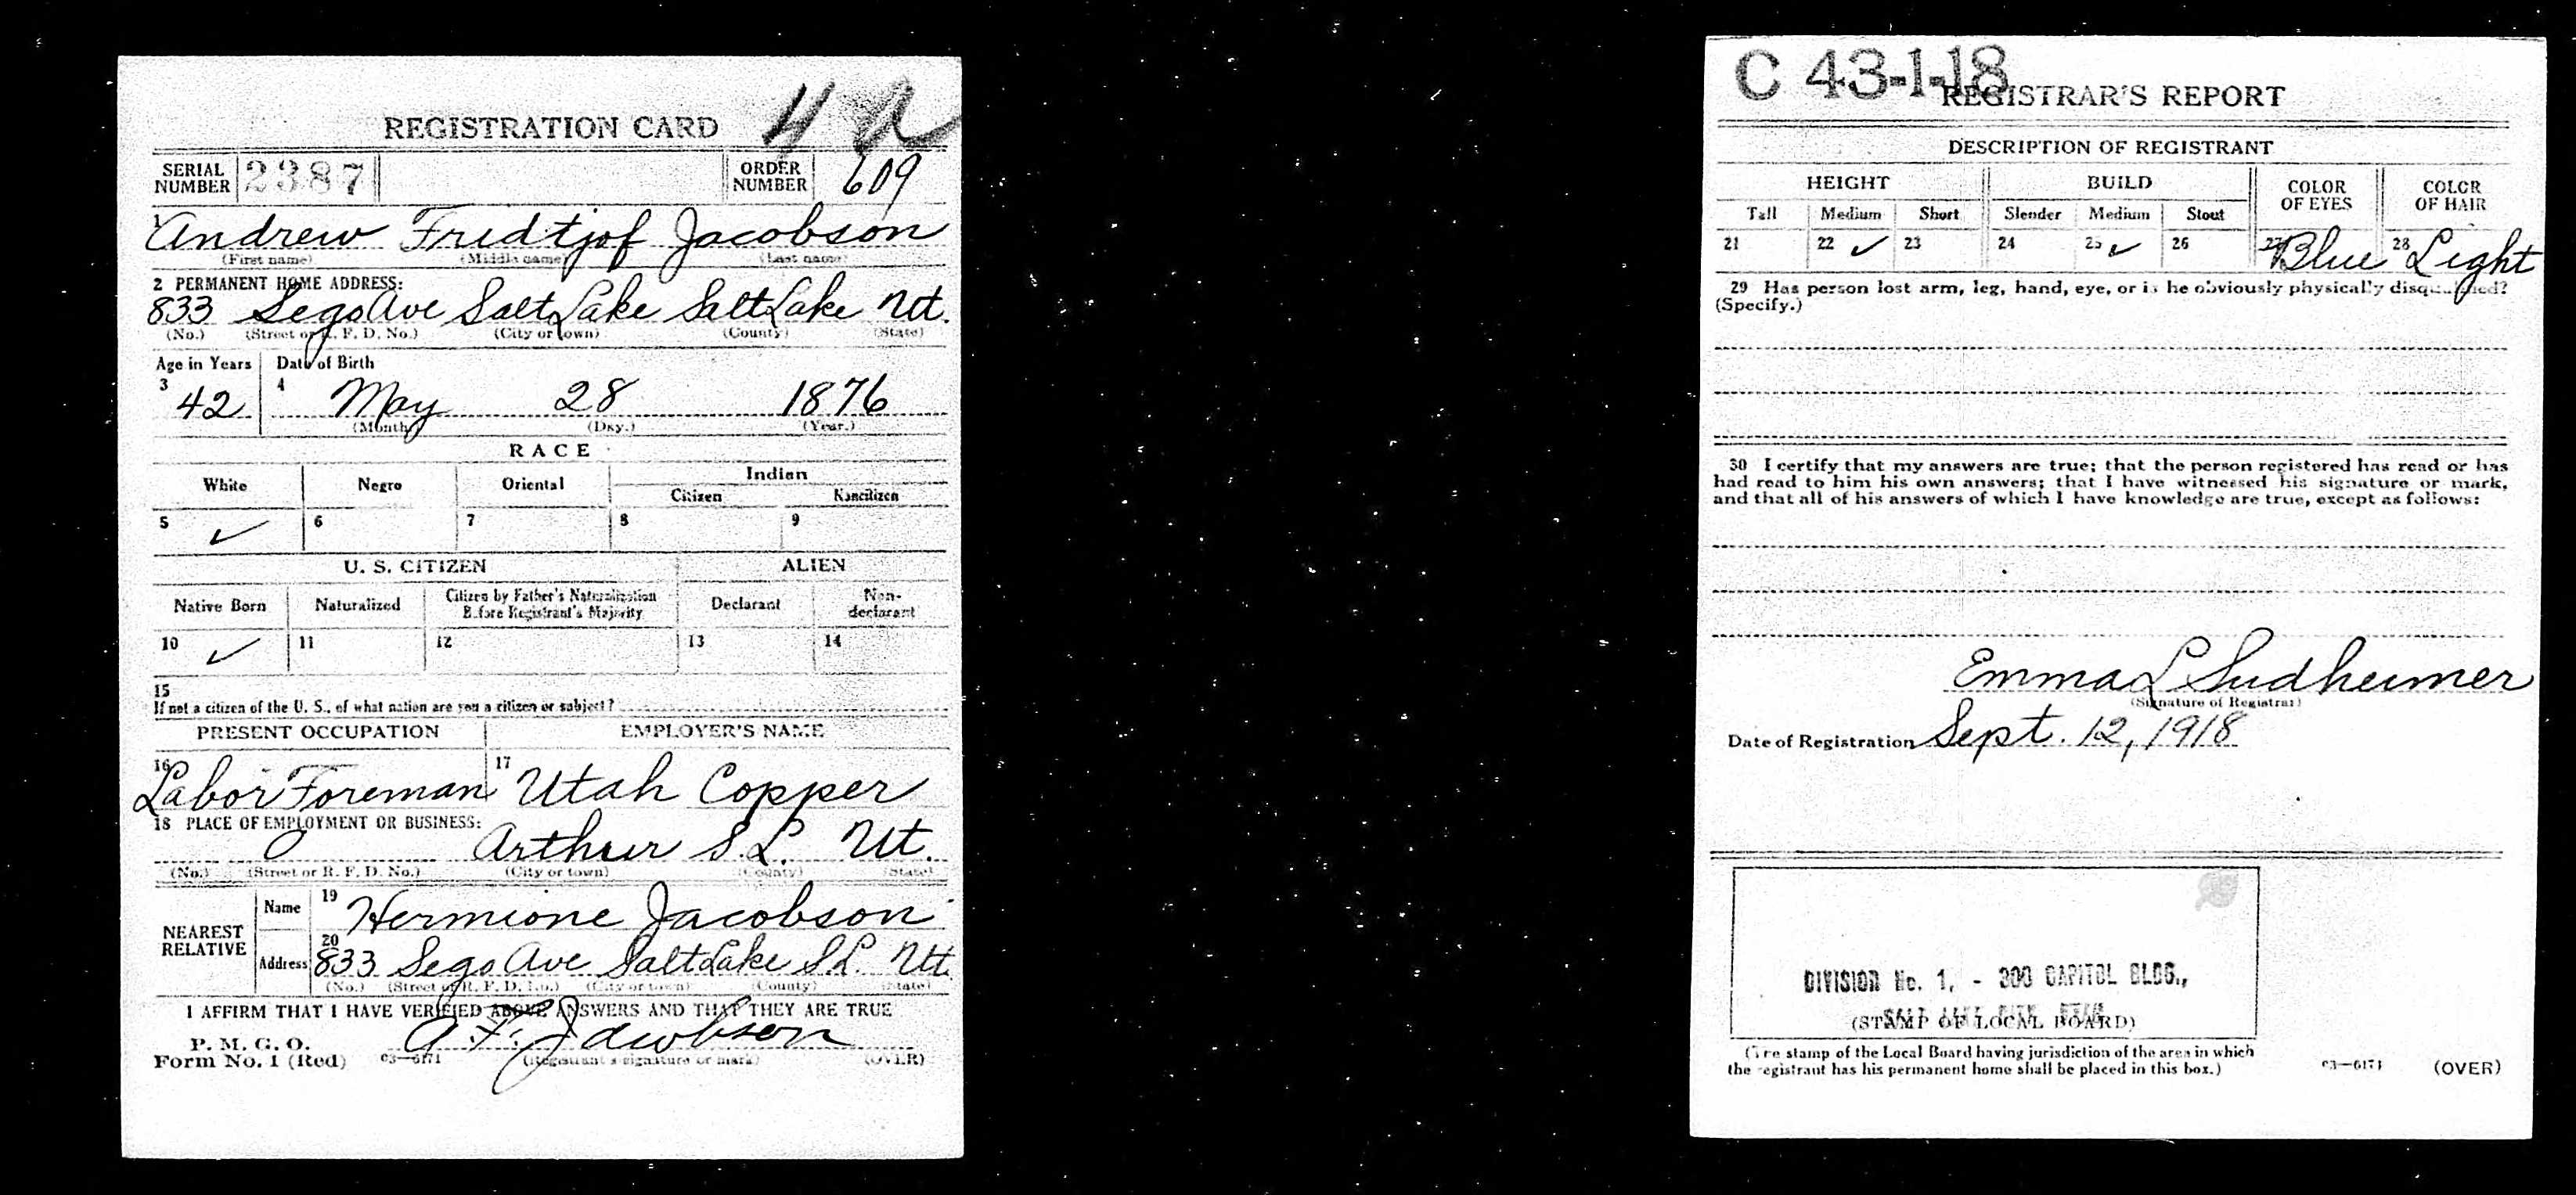 4 a
REGISTRATION CARD
SERIAL NUMBER 2387 ORDER NUMBER 609
Andrew Fridtjof Jacobson
(First name) (Middle name) (Last name)
2 PERMANENT HOME ADDRESS:
833 Sego Ave Salt Lake Salt Lake Ut.
(No.) (Street or R. F. D. No.) (City or town) (County) (State)
Age in Years Date of Birth
3 42 4 May 28 1876
(Month) (Day.) (Year.)
RACE
White Negro Oriental Indian
Citizen Noncitizen
5 ✓ 6 7 8 9
U. S. CITIZEN ALIEN
Native Born Naturalized Citizen by Father's Naturalization Before Registrant's Majority Declarant Non-declarant
10 ✓ 11 12 13 14
15
If not a citizen of the U. S., of what nation are you a citizen or subject?
PRESENT OCCUPATION EMPLOYER'S NAME
16 Labor Foreman 17 Utah Copper
18 PLACE OF EMPLOYMENT OR BUSINESS:
Arthur S.L. Ut.
(No.) (Street or R. F. D. No.) (City or town) (County) (State)
NEAREST RELATIVE
Name 19 Hermione Jacobson
Address 20 833 Sego Ave Salt Lake S.L. Ut.
(No.) (Street or R. F. D. No.) (City or town) (County) (State)
I AFFIRM THAT I HAVE VERIFIED ABOVE ANSWERS AND THAT THEY ARE TRUE
A. F. Jacobson
P. M. G. O.
Form No. 1 (Red) 03—6171 (Registrant's signature or mark) (OVER)
C 43-1-18
REGISTRAR'S REPORT
DESCRIPTION OF REGISTRANT
HEIGHT BUILD COLOR OF EYES COLOR OF HAIR
Tall Medium Short Slender Medium Stout
21 22 ✓ 23 24 25 ✓ 26 27 Blue 28 Light
29 Has person lost arm, leg, hand, eye, or is he obviously physically disqualified?
(Specify.)
30 I certify that my answers are true; that the person registered has read or has
had read to him his own answers; that I have witnessed his signature or mark,
and that all of his answers of which I have knowledge are true, except as follows:
Emma L Sudheimer
(Signature of Registrar)
Date of Registration Sept. 12, 1918
DIVISION No. 1, - 300 CAPITOL BLDG.,
SALT LAKE CITY, UTAH
(STAMP OF LOCAL BOARD)
(The stamp of the Local Board having jurisdiction of the area in which
the registrant has his permanent home shall be placed in this box.)
03—6171 (OVER)